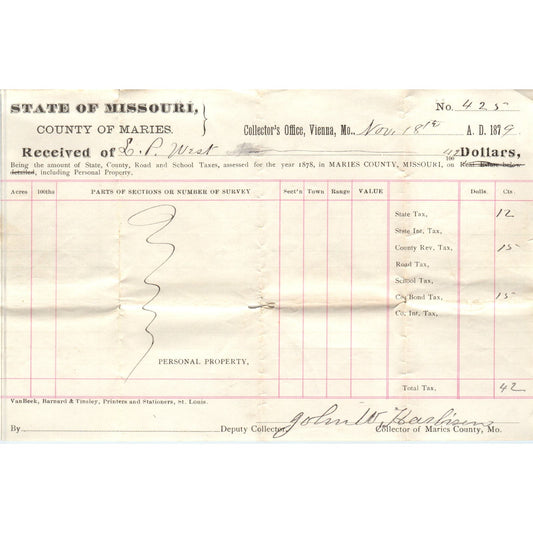 No. 425
STATE OF MISSOURI,
COUNTY OF MARIES.
Collector's Office, Vienna, Mo., Nov. 18th A. D. 1879
Received of L. P. West 42/100 Dollars,
Being the amount of State, County, Road and School Taxes, assessed for the year 1878, in MARIES COUNTY, MISSOURI, on Real Estate below
detailed, including Personal Property.
Acres 100ths PARTS OF SECTIONS OR NUMBER OF SURVEY Sect'n Town Range VALUE Dolls. Cts.
State Tax, 12
State Int, Tax,
County Rev, Tax, 15
Road Tax,
School Tax,
Co. Bond Tax, 15
Co, Int, Tax,
PERSONAL PROPERTY,
Total Tax. 42
VanBeek, Barnard & Tinsley, Printers and Stationers, St. Louis.
By Deputy Collector. John W.
Collector of Maries County, Mo.